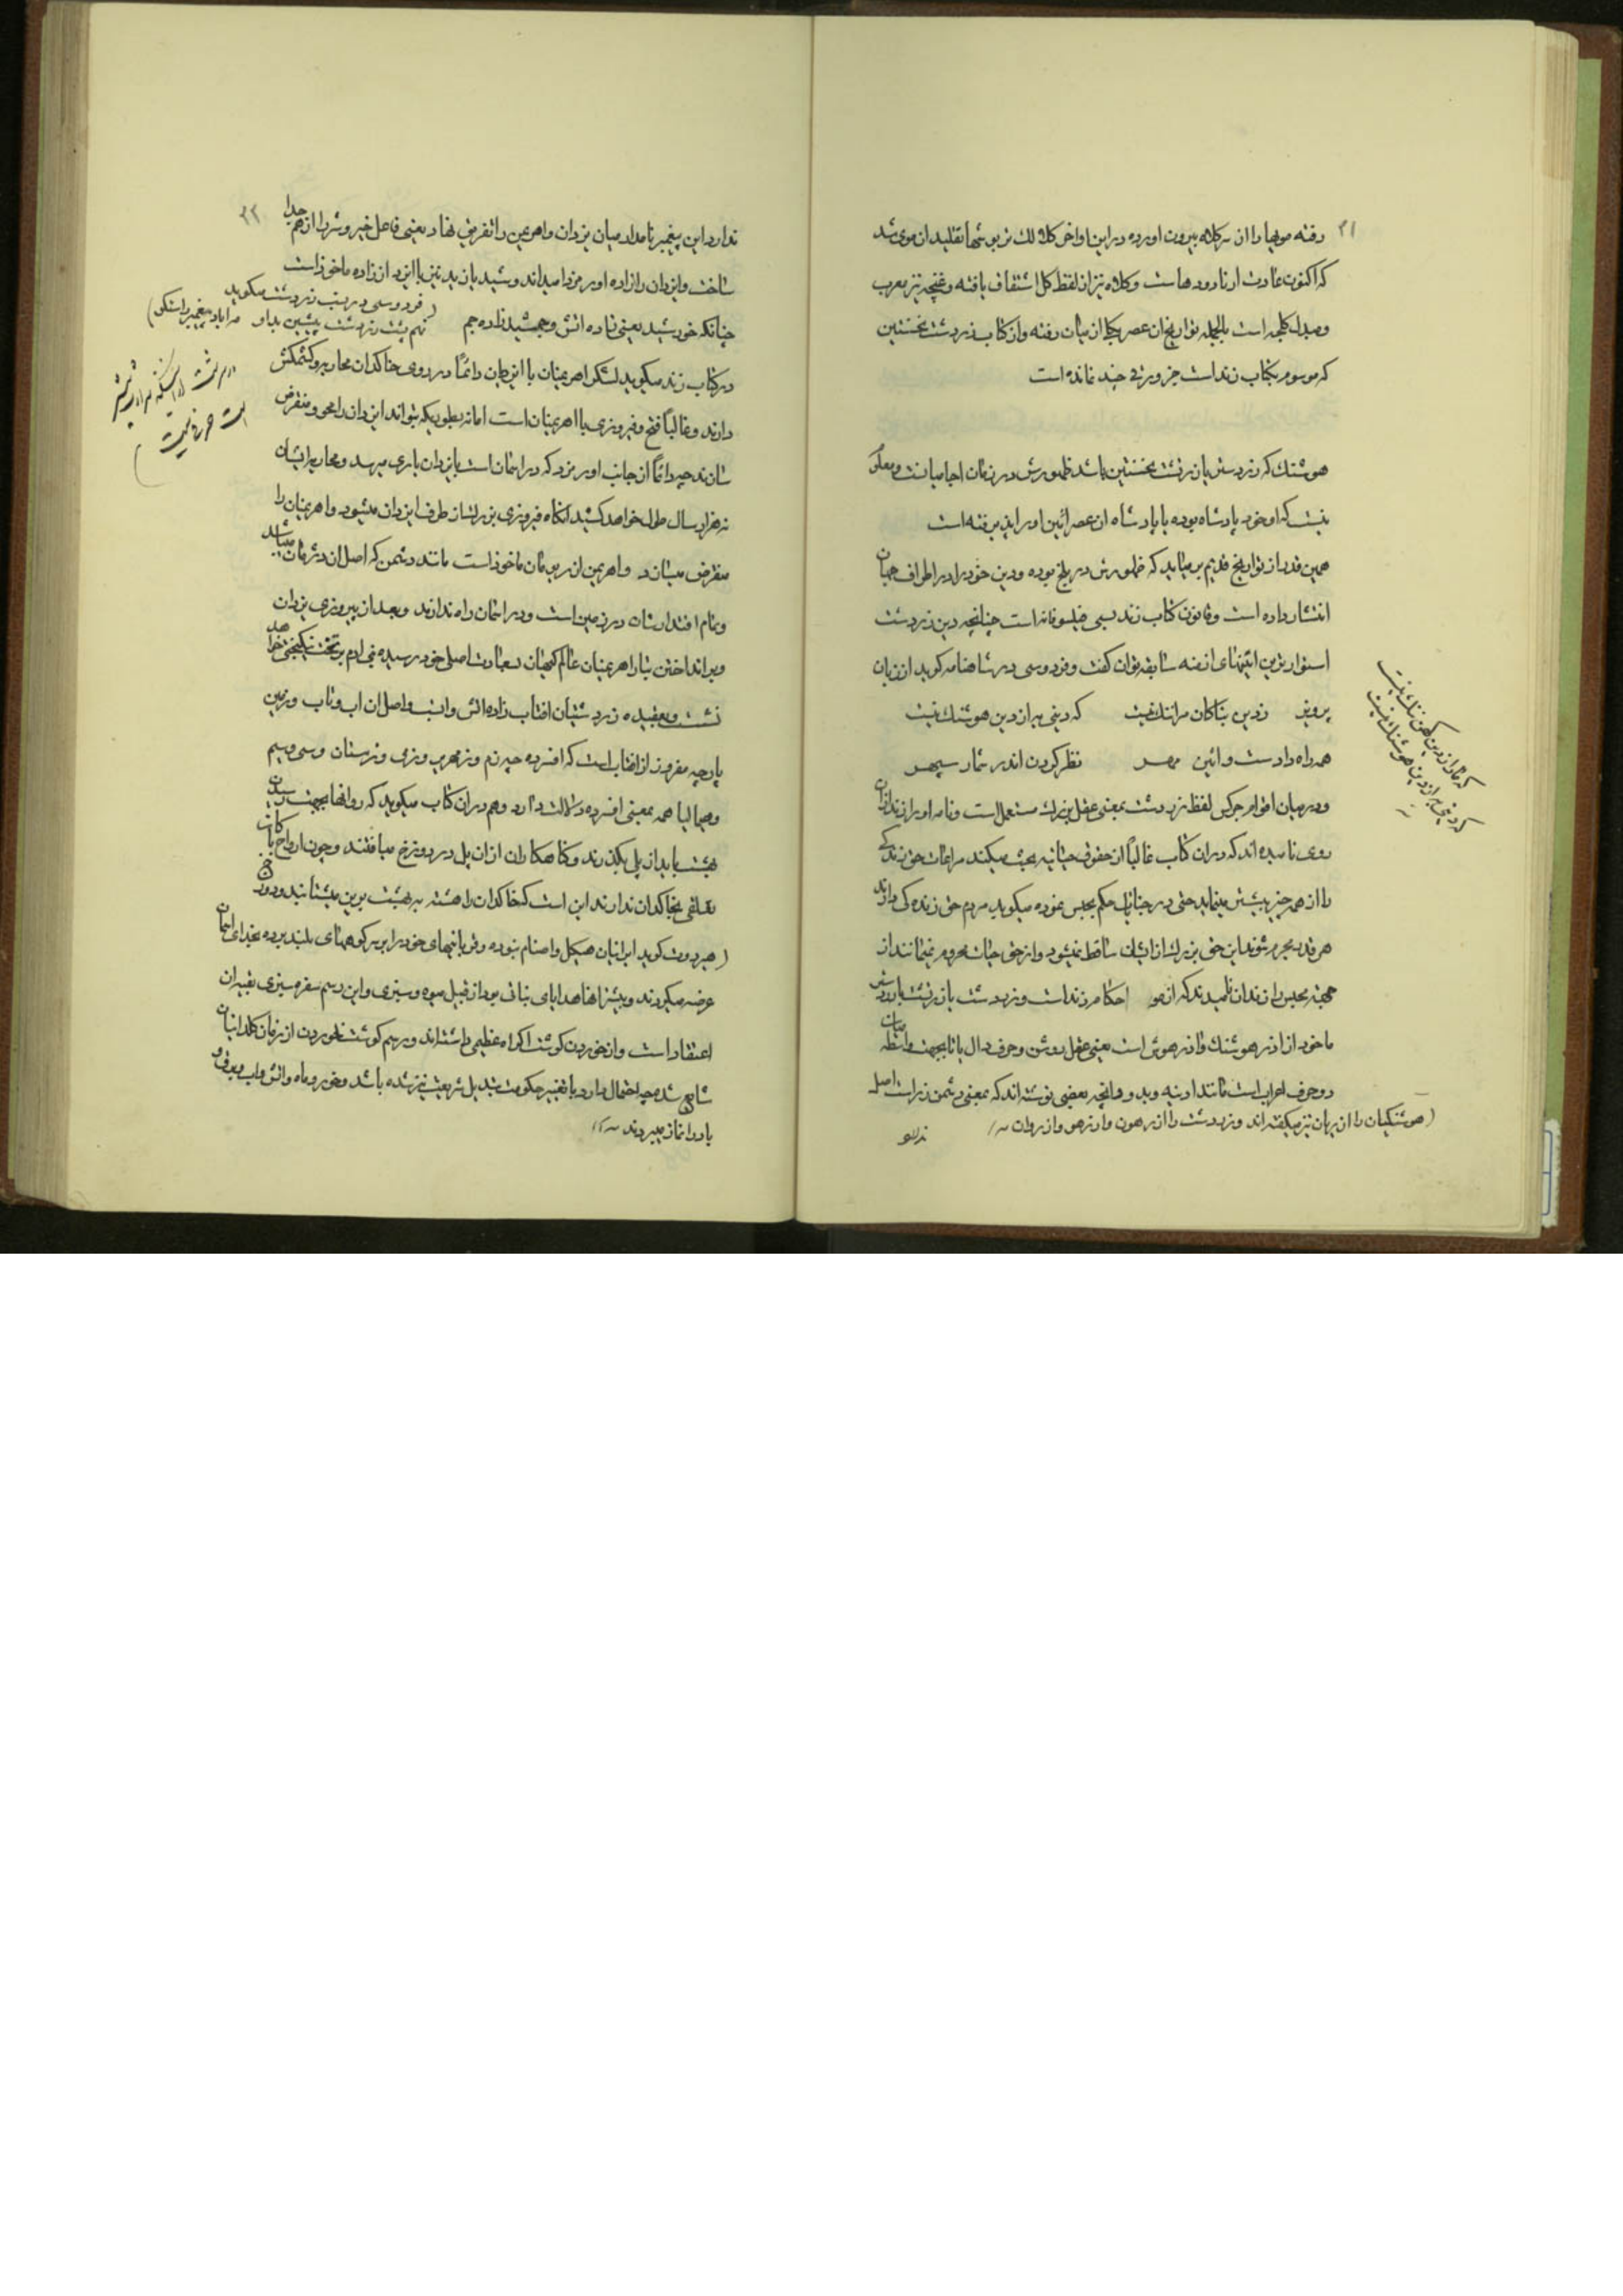 ۲۱
رفته مویها را از سر کلاه بیرون اورده در این اواخر کلاه لک تریویتها تقلید ان موی شد
که اکنون عادت ارناودها است و کلاه نیز از لفظ کل اشتقاق یافته و غنچه نیز معرب
و مبدل کلجه است بالجمله تواریخ ان عصر بکلی از میان رفته و از کتاب زردشت نخستین
که موسوم بکتاب زند است جز ورقی چند نمانده است
هوشنک که زردستر یا زرتشت نخستین باشد ظهورش در زمان اجامیانست و معلوم
نیست که او خود پادشاه بوده یا پادشاه ان عصر ائین او را پذیرفته است
همین قدر از تواریخ قدیم بر میاید که ظهورش در بلخ بوده و دین خود را در اطراف جهان
انتشار داده است و قانون کتاب زند بسی فیلسوفانه است چنانچه دین زردشت
استوارترین ائینهای ازمنه سابقه توان کفت و فردوسی در شاهنامه کوید از زبان
پرویز ز دین نیاکان مرا ننک نیست که دینی به از دین هوشنک نیست
همه راه دادست و ائین مهر نظر کردن اندر شمار سپهر
و در میان اقوام جرکس لفظ زردشت بمعنی عقل بزرک مستعمل است و نامه او را زند از ان
روی نامیده اند که در ان کتاب غالباً از حقوق حیاتیه بحث میکند مراعات حق زندکی
را از همه چیز بیشتر مینماید حتی در جنایات حکم بحبس نموده میکوید مردم حق زنده کی دارند
هر قدر مجرم شوند این حق بزرک از ایشان ساقط نمیشود و از حق حیات محروم نمیمانند از
جهته محبس را زندان نامیدند که از هو احکام زند است و زردشت یا زرتشت یا زردستر
ماخوذ از اذر هوشنک و اذر هوش است یعنی عقل روشن و حرف دال یا تا بجهت واسطه میان
دو حرف اعراب است مانند ادینه و بدو و انچه بعضی نوشته اند که بمعنی دشمن زر است اصل
(هوشنکیان را ازیهان نیز میکفته اند و زردشت را ازرهون و ازرهو و ازروان
ندارد
که ما را ز دین کهن ننک نیست
که دینی به از دین هوشنک نیست
۲۲
ندارد این پیغمبر نامدار میان یزدان و اهریمن را تفریق نهاد یعنی فاعل خیر و شر را از هم جدا
ساخت و ایزدان را زاده اورمزد میداند و شید یا زید نیز با ایزد از زاده ماخوذ است
چنانکه خورشید یعنی زاده اتش و جمشید زاده جم
(فردوسی در نسب زردشت میکوید
نهم پشت زردشت پیشین بد او مه اباد پیغمبر راستکو)
در کتاب زند میکوید لشکر اهریمنان با ایزدان دائماً در روی خاکدان محاربه و کشمکش
دارند و غالباً فتح و فیروزی با اهریمنان است اما نه بطوریکه بتوانند ایزدان را محو و منقرض
سازند چه دائماً از جانب اورمزد که در اسمان است بایزدان یاری میرسد و محاربه ایشان
نه هزار سال طول خواهد کشید انکاه فیروزی بزرک از طرف ایزدان میشود و اهریمنان را
منقرض میسازد و اهریمن از ریمان ماخوذ است مانند دشمن که اصل ان دشمان میباشد
و تمام اقتدارشان در زمین است و در اسمان راه ندارند و بعد از پیروزی یزدان
و برانداختن تبار اهریمنان عالم کیهان بسعادت اصلی خود رسیده بنی ادم بر تخت نیکبختی خواهد
نشست و بعقیده زردشتیان افتاب زاده اتش و اصل ان اب و تاب و زمین
پارچه مفروز از افتاب است که افسرده چه زم و زمهریر و زمی و زمستان و سمی و سیم
و هیمالیا همه بمعنی افسرده دلالت دارد و هم در ان کتاب میکوید که روانها بجهت رسیدن
بهشت باید از پل بکذرند و کناهکاران از ان پل در دوزخ میافتند و چون ارواح پاکان
تعلقی بخاکدان ندارند این است که خاکدان را هشته به بهشت برین میشتابند و دوزخ
(هردوت کوید ایرانیان هیکل و اصنام نبوده و قربانیهای خود را بر سر کوههای بلند برده بخدای اسمان
عرضه میکردند و بیشتر انها هدایای نباتی بود از قبیل میوه و سبزی و این رسم سفره سبزی بقیه ان
اعتقاد است و از خوردن کوشت اکراه عظیمی داشته اند و رسم کوشت نخوردن از زمان کلدانیان
شایع شد و چه احتمال دارد با تغییر حکومت تبدیل شریعت نیز شده باشد و خور و ماه و اتش و اب و برف و
باد را نماز میبردند